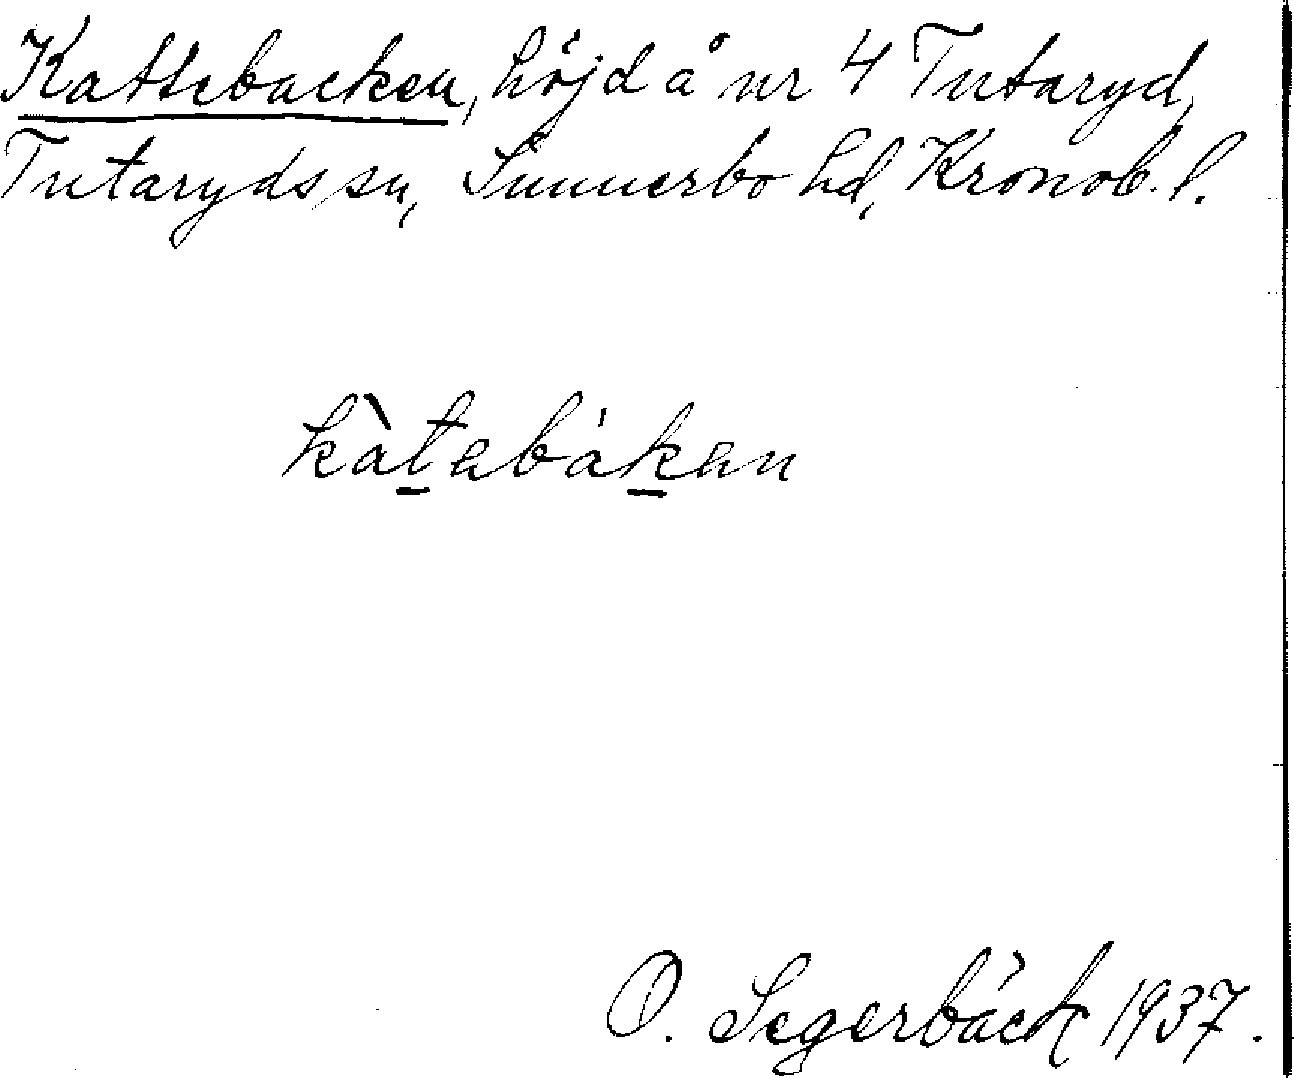 Kattebacken, höjd å nr 4 Tutaryd,
Tutaryds sn, Sunnerbo hd, Kronob. l.
kàtabákan
O. Segerbäck 1937.